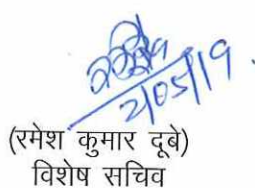 2/05/19
(रमेश कुमार दूबे)
विशेष सचिव